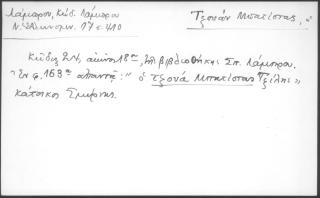 Λάμπρου, Κώδ. Λάμπρου
Ν. Ἑλληνομν. 17 σ. 410
Τζουάν Μπατίστας,
Κῶδιξ 24, αἰῶνος 18ου, τῆς βιβλιοθήκης Σπ. Λάμπρου.
Ἐν φ. 163α ἀπαντᾷ: " ὁ Τζουά Μπατίστας
κάτοικος Σμύρνης.